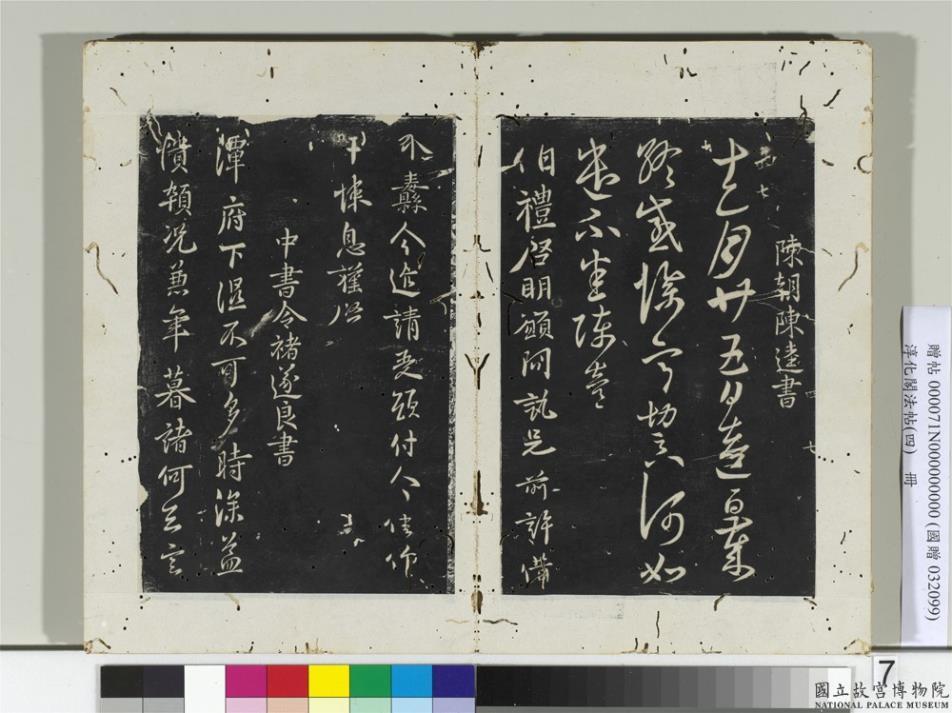 陳朝陳逵書
十二月廿五日逵
歲終感悼
切不可言何如
陳逵
伯禮啓明願問訊兄前許備
不蠹今進請受願付今使仰
干悚息謹啓
中書令褚遂良書
潭府下濕不可多時深益
憒頓況兼年暮諸何足言
贈帖 000071N000000000 (國贈 032099)
淳化閣法帖(四) 冊
7
國立故宮博物院
NATIONAL PALACE MUSEUM